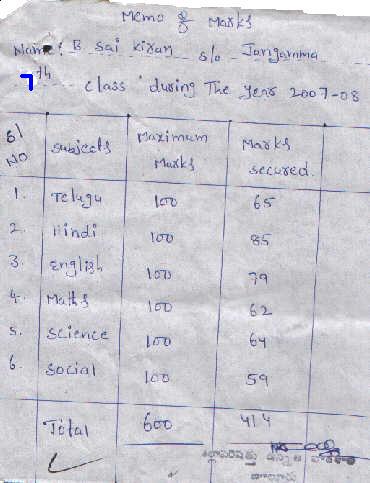 Memo of Marks
Name: B Sai Kiran S/o Jangamma
7th class during The year 2007-08
Sl No Subjects Maximum Marks Marks secured.
1. Telugu 100 65
2. Hindi 100 85
3. English 100 79
4. Maths 100 62
5. Science 100 64
6. Social 100 59
Total 600 414